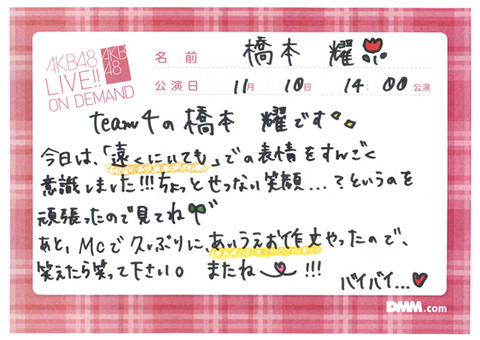 AKB48
LIVE!!
ON DEMAND
AKB
48
名前 橋本 耀
公演日 11月 10日 14:00公演
team4の橋本 耀です
今日は、「遠くにいても」での表情をすんごく
意識しました!!!ちょっとせつない笑顔...?というのを
頑張ったので見てね
あと、MCで久しぶりに、あいうえお作文やったので、
笑えたら笑って下さい。 またね !!!
バイバイ...
DMM.com